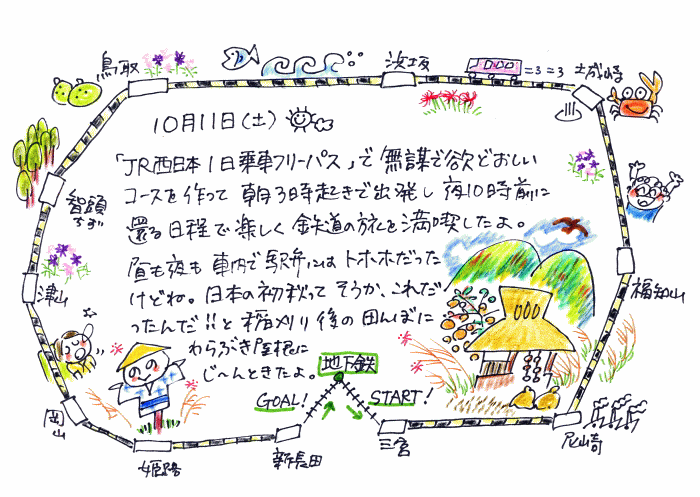 鳥取
浜坂
城崎
10月11日(土)
「JR西日本1日乗車フリーパス」で 無謀で欲どおしい
コースを作って 朝3時起きで出発し 夜10時前に
還る日程で楽しく 鉄道の旅を満喫したよ。
昼も夜も 車内で駅弁にはトホホだった
けどね。日本の初秋って そうか、これだ
ったんだ!!と 稲刈り後の田んぼに
わらぶき屋根に
じ〜んときたよ。
智頭
ちず
津山
岡山
姫路
新長田
GOAL!
地下鉄
START!
三宮
尼崎
福知山